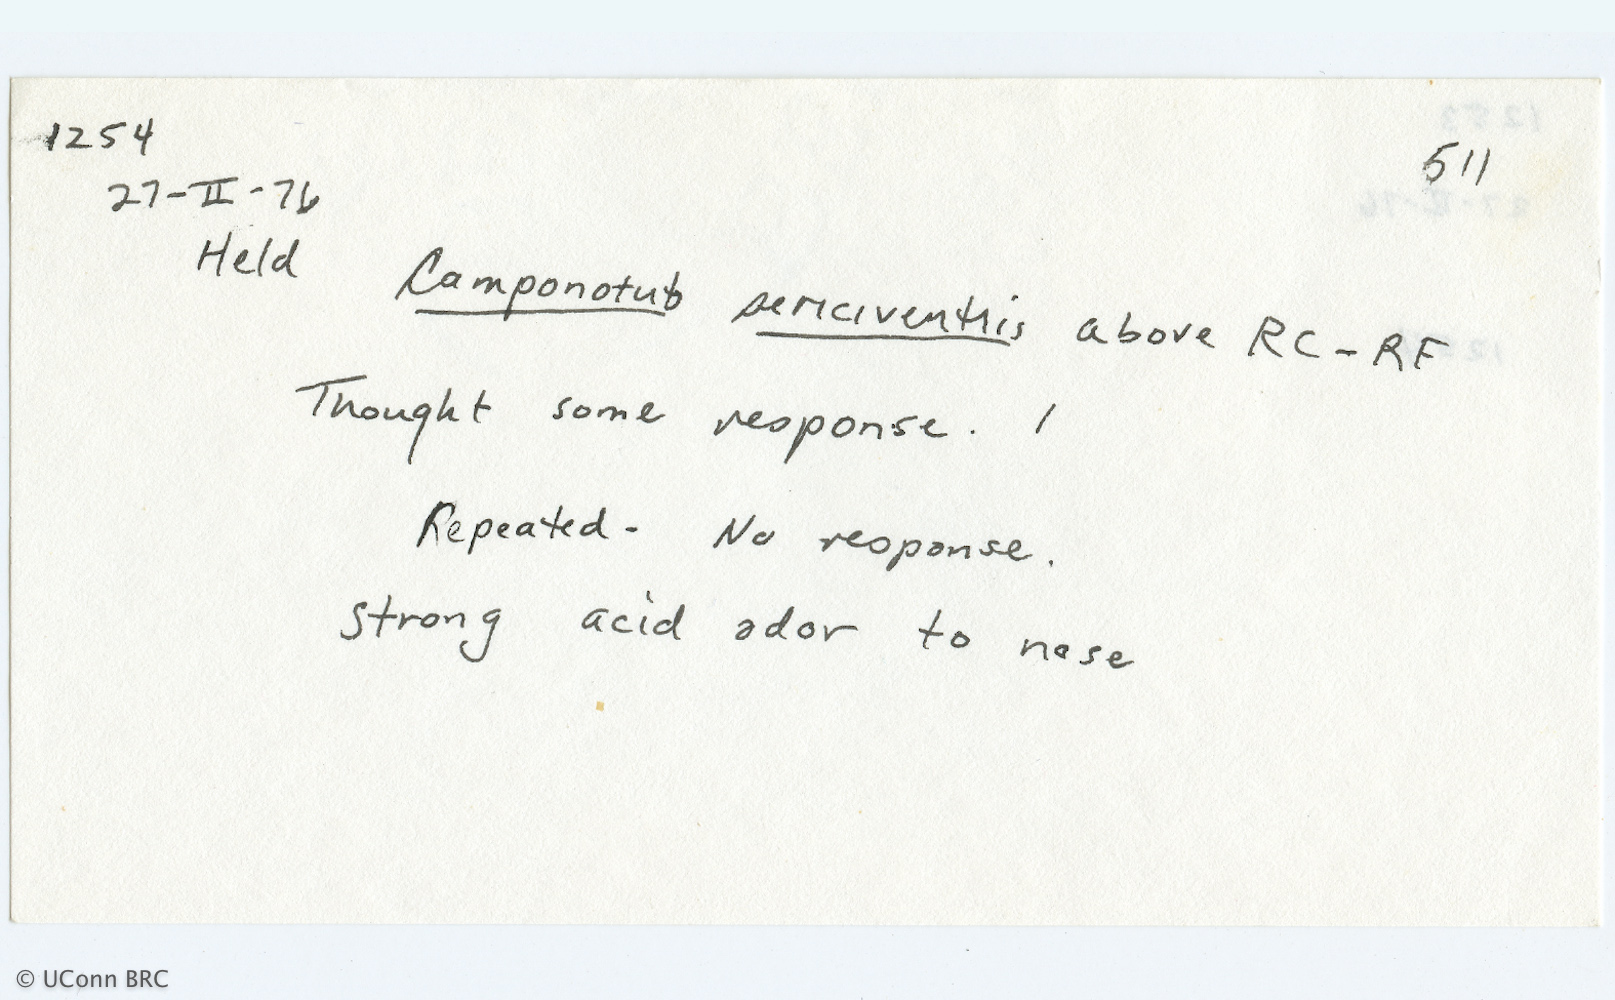 1254
511
27-II-76
Held Camponotus sericiventris above RC-RF
Thought some response. /
Repeated - No response.
Strong acid odor to nose
© UConn BRC